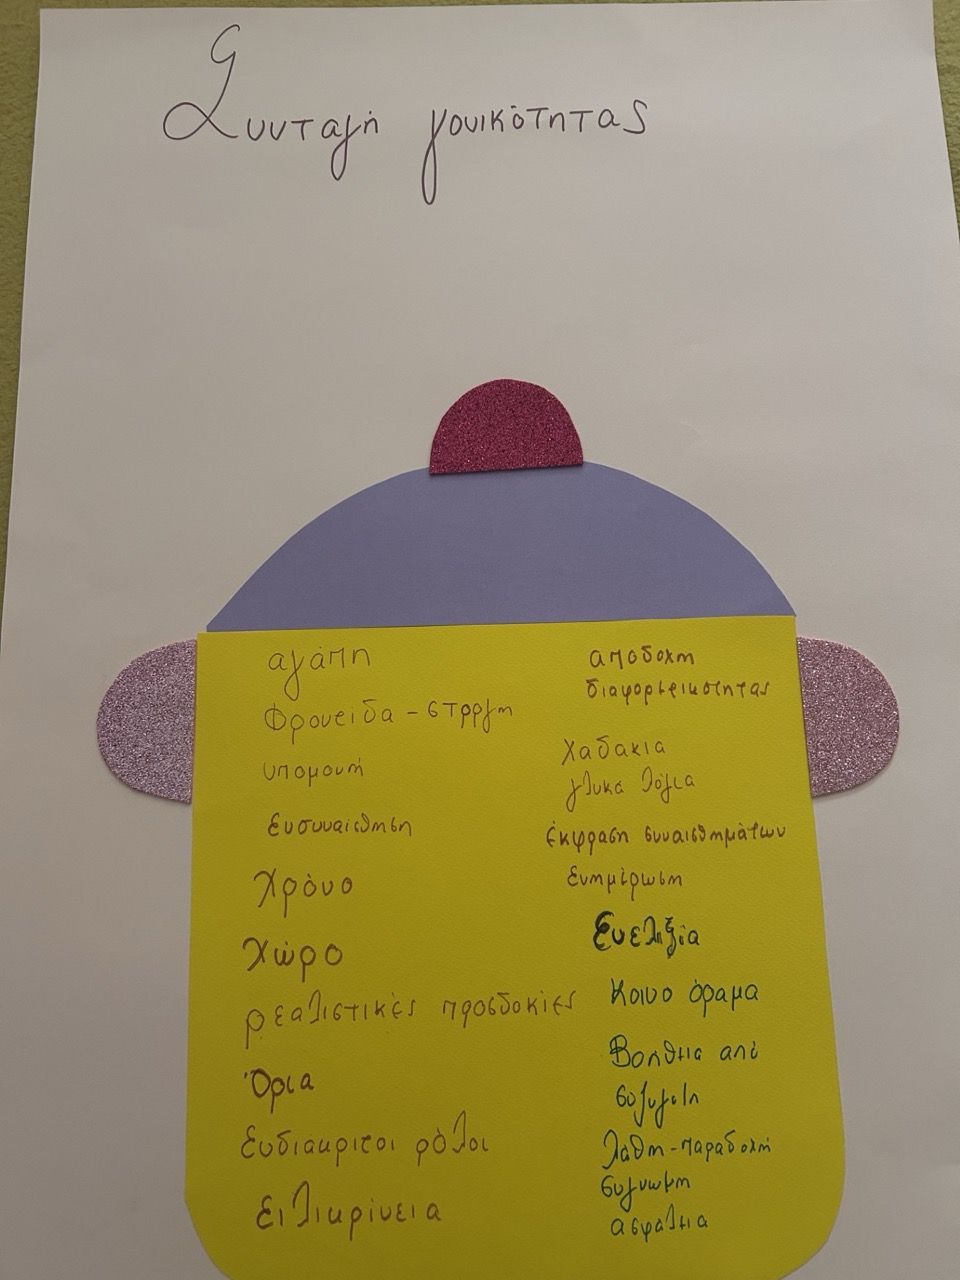 Συνταγή γονικότητας
αγάπη
Φροντίδα - στοργή
υπομονή
Ενσυναίσθηση
Χρόνο
Χώρο
ρεαλιστικές προσδοκίες
Όρια
Ευδιακριτοι ρόλοι
Ειλικρίνεια
αποδοχη
διαφορετικοτητας
Χαδακια
γλυκα λόγια
έκφραση συναισθημάτων
Ενημέρωση
Ευελιξία
Κοινο όραμα
Βοηθεια από
συζυγο/η
λαθη-παραδοχή
συγνωμη
ασφαλεια